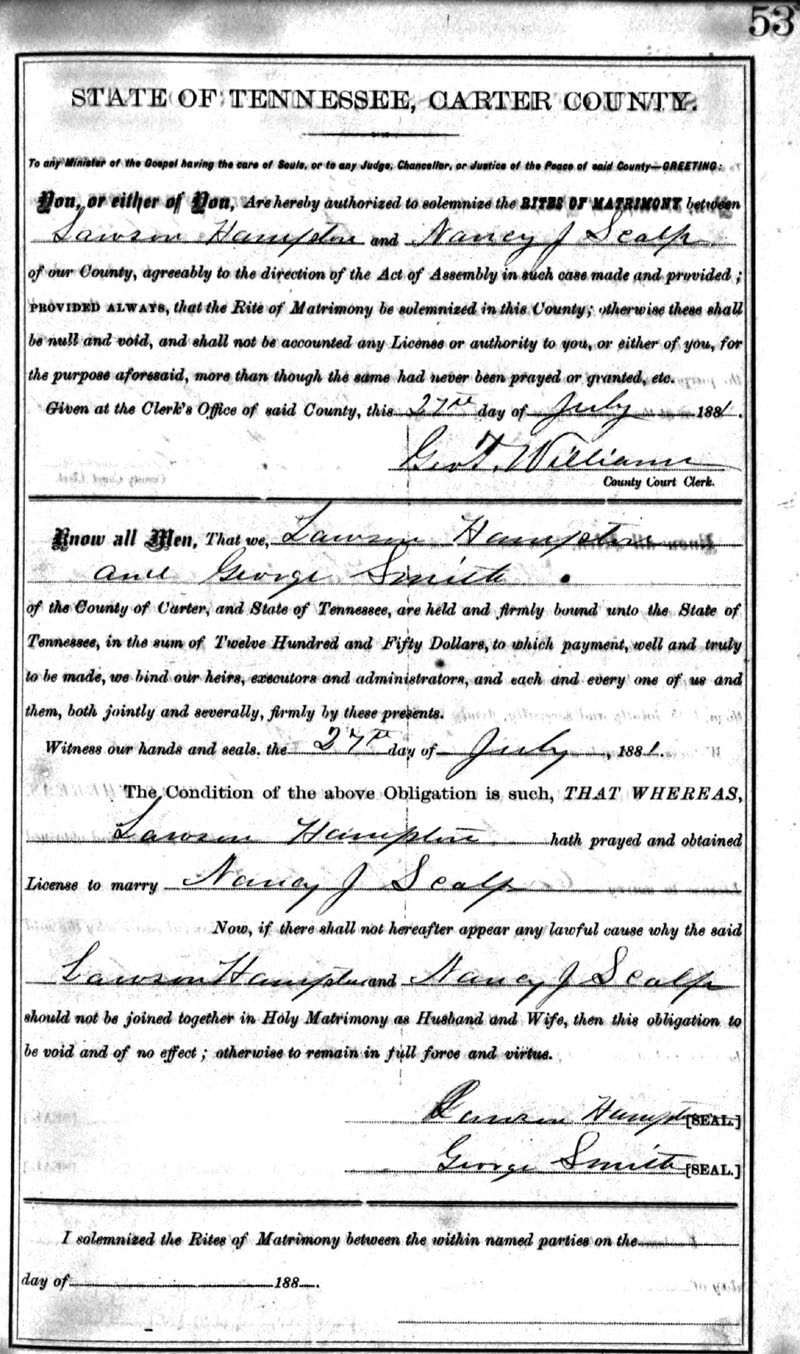 53
STATE OF TENNESSEE, CARTER COUNTY.
To any Minister of the Gospel having the care of Souls, or to any Judge, Chancellor, or Justice of the Peace of said County—GREETING:
You, or either of You, Are hereby authorized to solemnize the RITES OF MATRIMONY between
Lawson Hampton and Nancy J Scalf
of our County, agreeably to the direction of the Act of Assembly in such case made and provided;
PROVIDED ALWAYS, that the Rite of Matrimony be solemnized in this County; otherwise these shall
be null and void, and shall not be accounted any License or authority to you, or either of you, for
the purpose aforesaid, more than though the same had never been prayed or granted, etc.
Given at the Clerk's Office of said County, this 27th day of July 1881.
Geo T. Williams
County Court Clerk.
Know all Men, That we, Lawson Hampton
and George Smith .
of the County of Carter, and State of Tennessee, are held and firmly bound unto the State of
Tennessee, in the sum of Twelve Hundred and Fifty Dollars, to which payment, well and truly
to be made, we bind our heirs, executors and administrators, and each and every one of us and
them, both jointly and severally, firmly by these presents.
Witness our hands and seals. the 27th day of July, 1881.
The Condition of the above Obligation is such, THAT WHEREAS,
Lawson Hampton hath prayed and obtained
License to marry Nancy J Scalf
Now, if there shall not hereafter appear any lawful cause why the said
Lawson Hampton and Nancy J Scalf
should not be joined together in Holy Matrimony as Husband and Wife, then this obligation to
be void and of no effect; otherwise to remain in full force and virtue.
Lawson Hampton [SEAL.]
George Smith [SEAL.]
I solemnized the Rites of Matrimony between the within named parties on the
day of 188 .